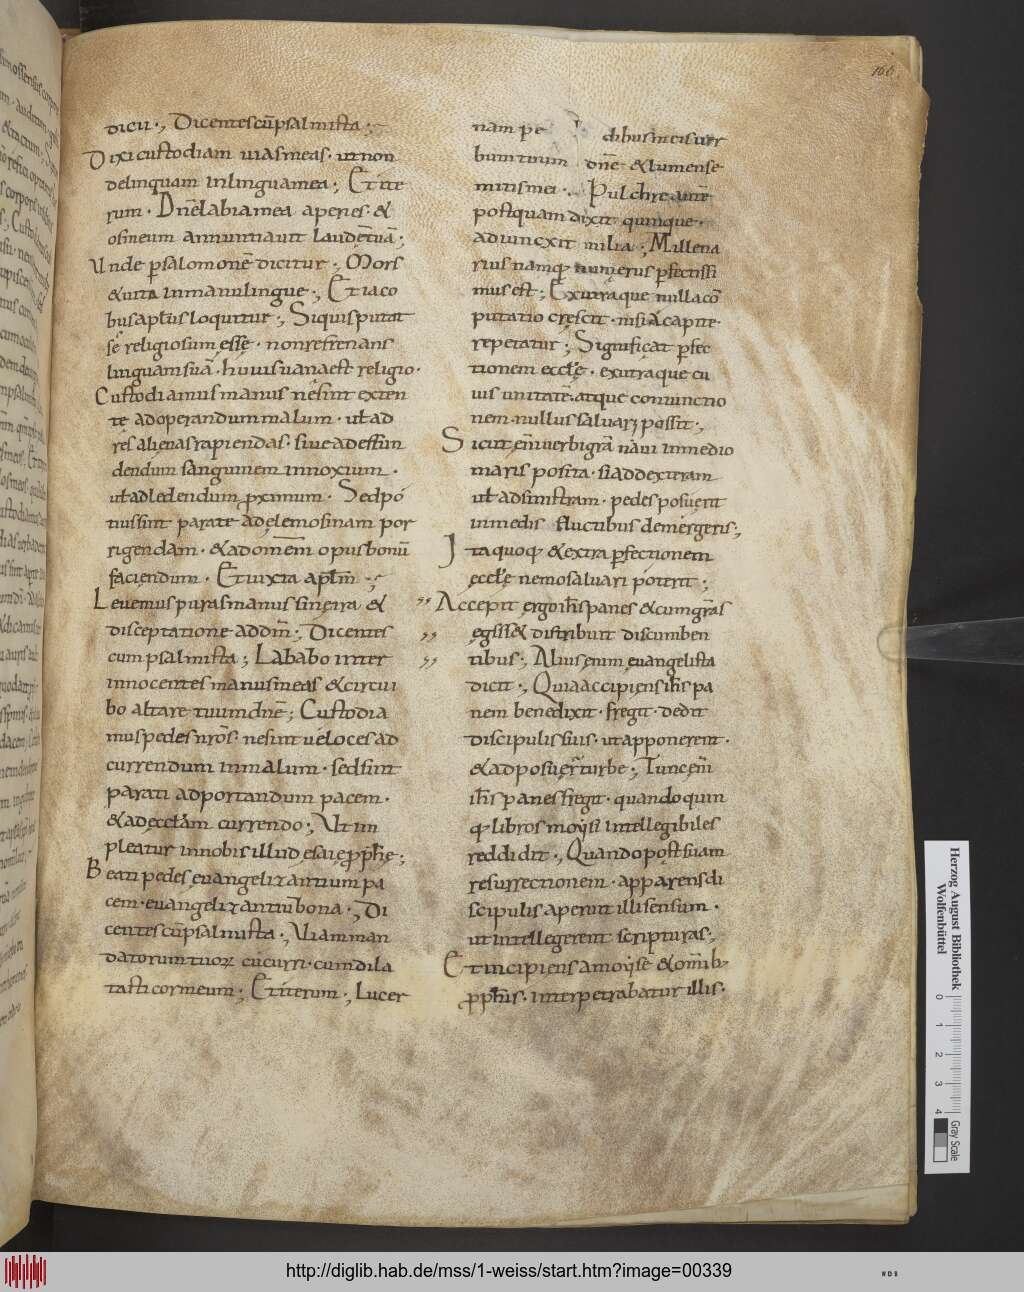 166
dicii ·, Dicentes cū psalmista ·,
Dixi custodiam uias meas · ut non
delinquam in lingua mea ·, Et ite
rum · Dn̄e labia mea aperies · &
os meum annuntiauit laudē tuā ·,
Unde p salomonē dicitur ·, Mors
& uita in manu linguę ·, Et iaco
bus apłus loquitur ·, Siquis putat
sē religiosum esse · non refrenans
linguam suā · huius uana est religio ·
Custodiamus manus ne sint exten
tę ad operandum malum · uł ad
res alienas rapiendas · siue ad effun
dendum sanguinem innoxium ·
uł ad ledendum proximum · Sed po
tius sint paratę ad elemosinam por
rigendam · & ad omnem opus bonū
faciendum · Et iuxta apłm ·,
Leuemus puras manus sine ira &
disceptatione ad dn̄m ·, Dicentes
cum psalmista ·, Lababo inter
innocentes manus meas & circui
bo altare tuum dn̄e ·, Custodia
mus pedes nr̄os · ne sint ueloces ad
currendum in malum · sed sint
parati ad portandum pacem ·
& ad ęcctam currendo ·, Ut im
pleatur in nobis illud esaię pphę ·,
Beati pedes euangelizantium pa
cem · euangelizantiū bona ·, Di
centes cū psalmista ·, Uiam man
datorum tuoꝝ cucurri · cum dila
tasti cor meum ·, Et iterum ·, Lucer
nam pe dibus meis uer
bum tuum dn̄e & lumen se
mitis meis ·, Pulchre autē
postquam dixit quinque ·
adiuncxit milia ·, Millena
rius namq; numerus pfectissi
mus est ·, Extra que nulla cō
putatio crescit · nisi a capite
repetatur ·, Significat pfec
tionem ecclę · extra que cu
ius unitatē · atque coniunctio
nem · nullus saluari possit ·,
Sicut enī uerbi grā naui in medio
maris posita · si ad dexteram
uł ad sinistram · pedes posuerit
in mediis fluctibus demergeris ·,
Ita quoq; & extra pfectionem
ecclę nemo saluari poterit ·,
Accepit ergo ih̄s panes & cum grās
egiss& distribuit discumben
tibus ·, Alius enim euangelista
dicit ·, Quia accipiens ih̄s pa
nem benedixit · fregit · dedit
discipulis suis · ut apponerent ·
& adposuer̄ turbę ·, Tunc enī
ih̄s panes fregit · quando quin
q; libros moysi intellegibiles
reddidit ·, Quando post suam
resurrectionem · apparens di
scipulis aperuit illi sensum ·
ut intellegerent scripturas ·,
Et incipiens a moyse & omīb;
pphis · interpetrabatur illis ·
Herzog August Bibliothek
Wolfenbüttel
0 1 2 3 4
Gray Scale
http://diglib.hab.de/mss/1-weiss/start.htm?image=00339